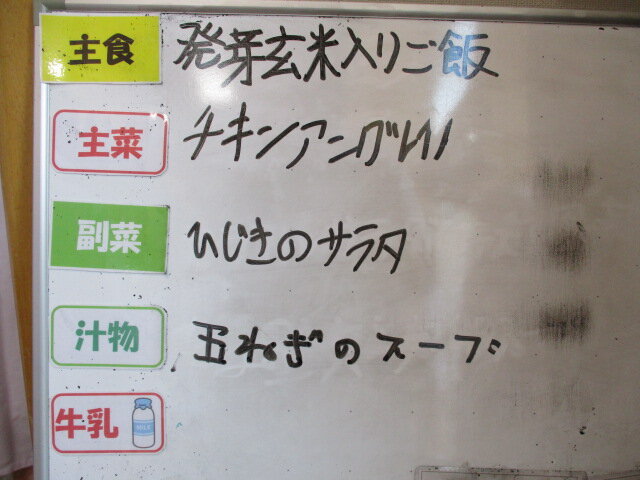 主食 発芽玄米入りご飯
主菜 チキンアングレイ
副菜 ひじきのサラタ
汁物 玉ねぎのスープ
牛乳 MILK